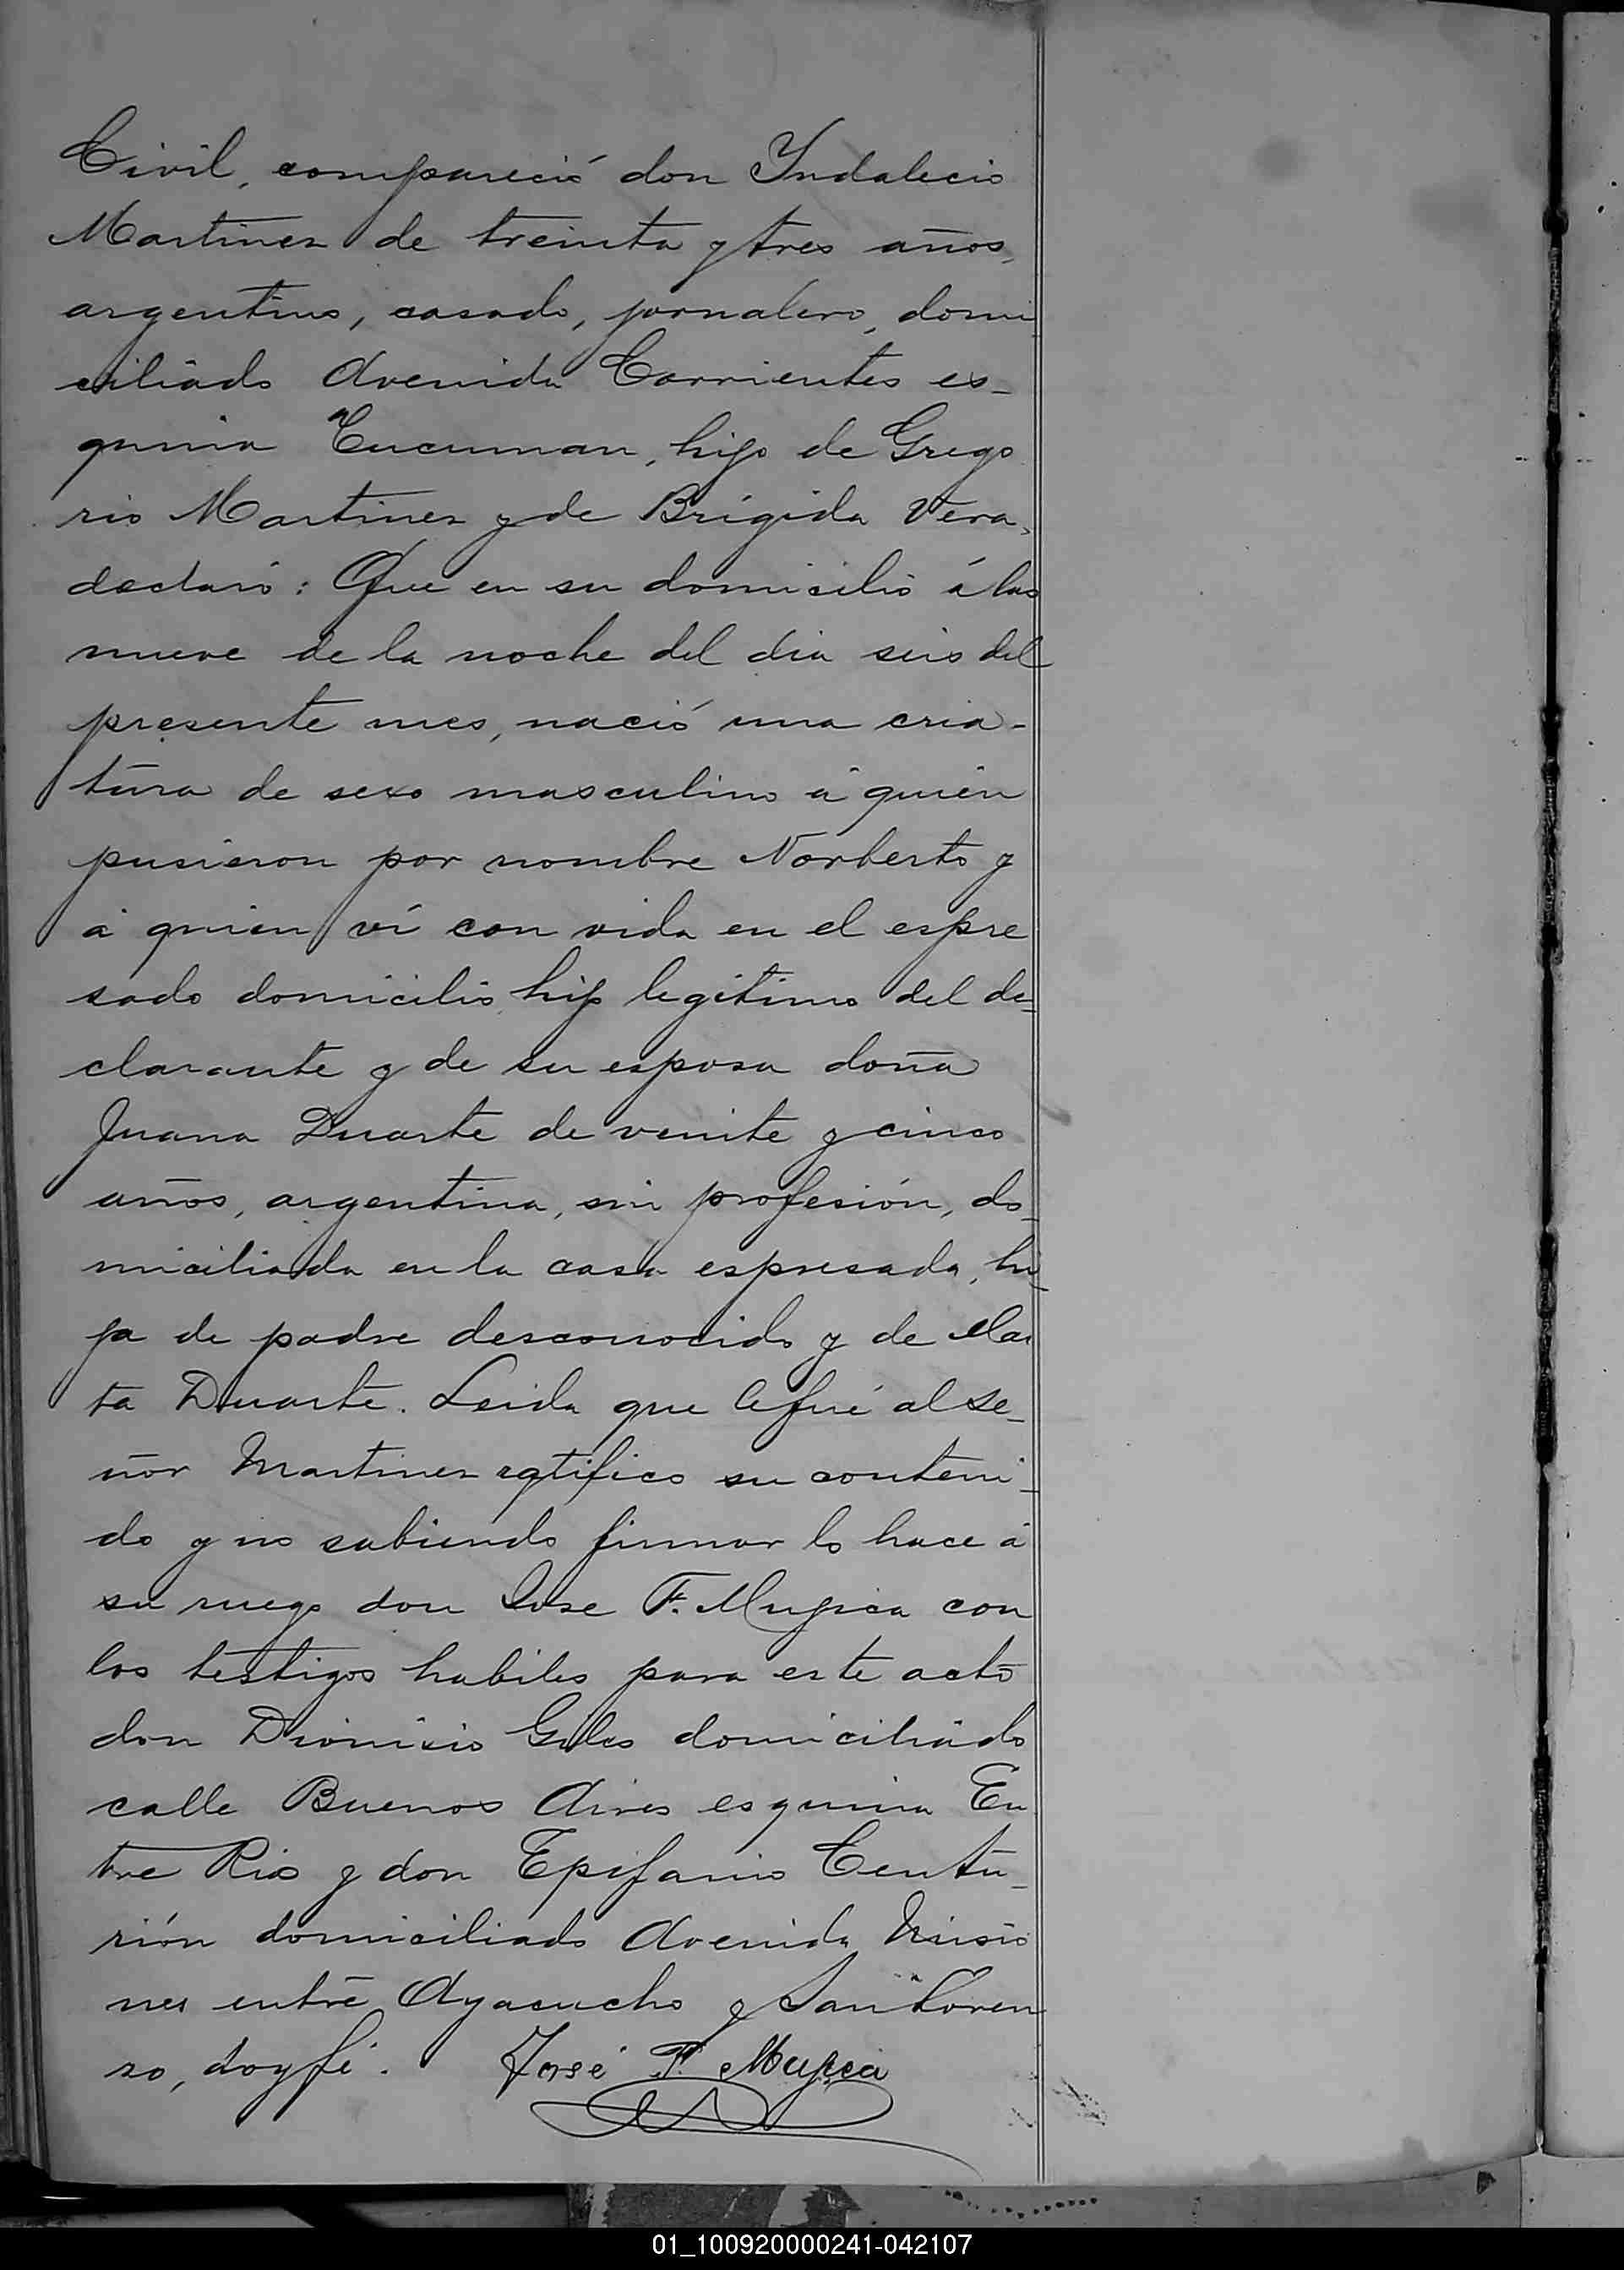 Civil, compareció don Yndalecio
Martinez de treinta y tres años,
argentino, casado, jornalero, domi
ciliado Avenida Corrientes es-
quina Tucuman, hijo de Grego
rio Martinez y de Brígida Vera,
declaró: Que en su domicilio á las
nueve de la noche del dia seis del
presente mes, nació una cria-
tura de sexo masculino á quien
pusieron por nombre Norberto y
á quien ví con vida en el espre
sado domicilio, hijo legítimo del de-
clarante y de su esposa doña
Juana Duarte de veinte y cinco
años, argentina, sin profesión, do-
miciliada en la casa espresada, hi-
ja de padre desconocido y de Mar
ta Duarte. Leida que le fué al se-
ñor Martinez ratifico su conteni-
do y no sabiendo firmar lo hace á
su ruego don Jose F. Mujica con
los testigos habiles para este acto
don Dionisio Giles domiciliado
calle Buenos Aires esquina En
tre Rios y don Epifanio Centu-
rión domiciliado Avenida Misio
nes entre Ayacucho y San Loren
zo, doy fé. José F. Mujica
01_100920000241-042107